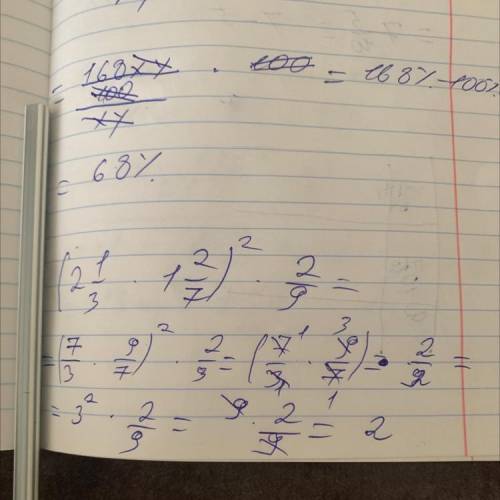 = (168xy/100)/xy · 100 = 168% - 100%
= 68%
(2 1/3 · 1 2/7)² · 2/9 =
= (7/3 · 9/7)² · 2/9 = (7/3 1 · 9/7 3)² · 2/9 =
= 3² · 2/9 = 9 · 2/9 1 = 2